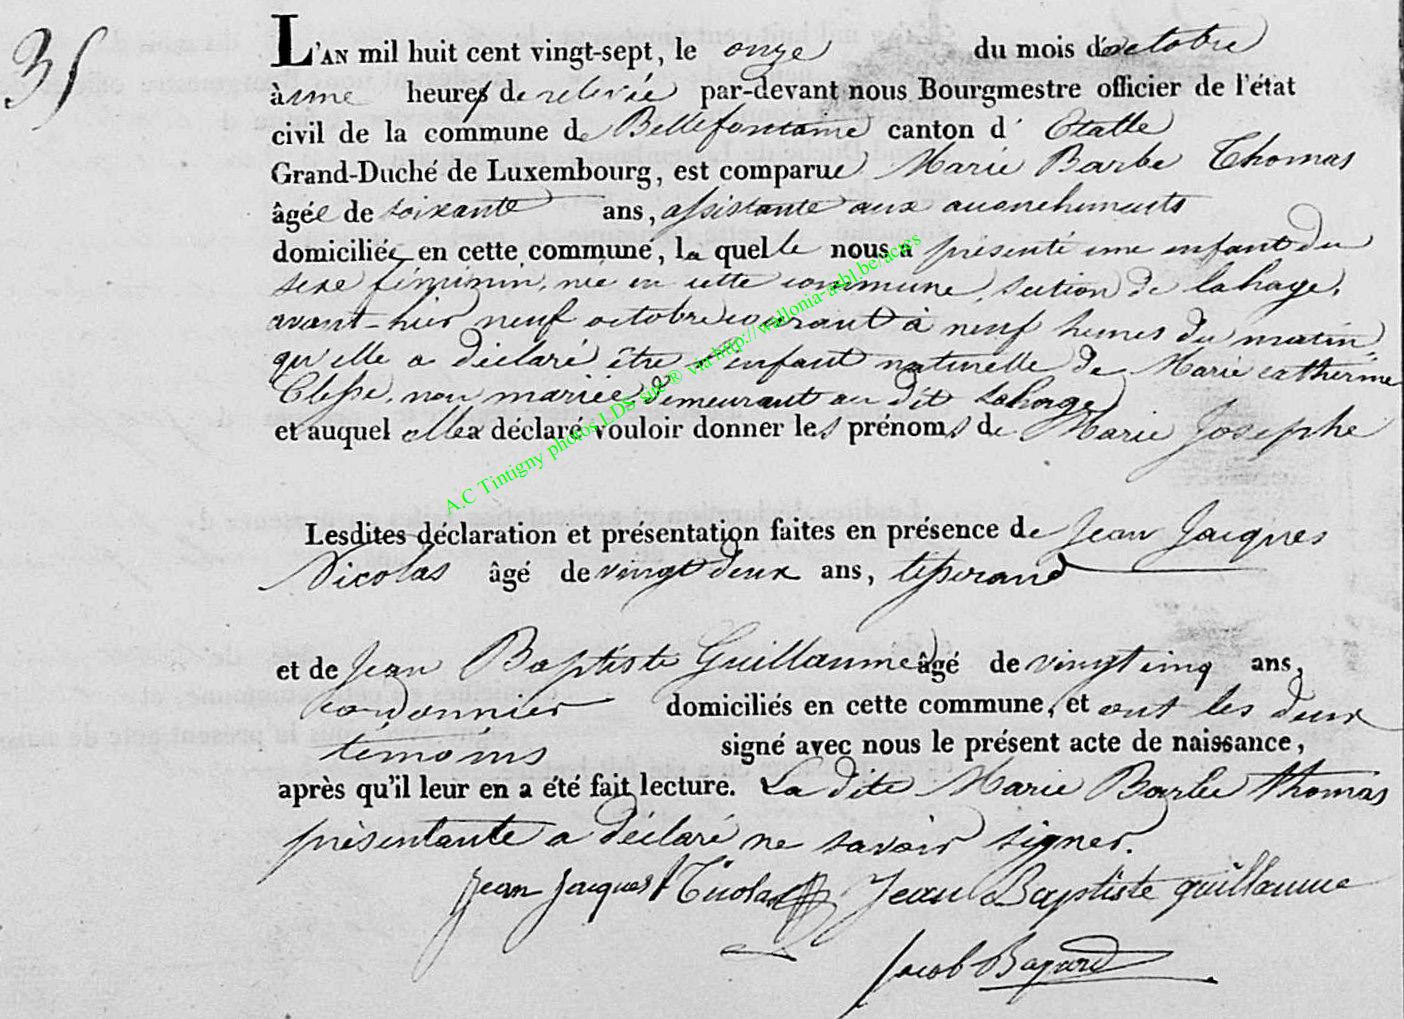 35
L'AN mil huit cent vingt-sept, le onze du mois d'octobre
à une heures de relevée par-devant nous Bourgmestre officier de l'état
civil de la commune de Bellefontaine canton d' Etalle
Grand-Duché de Luxembourg, est comparue Marie Barbe Thomas
âgée de soixante ans, assistante aux accouchements
domiciliée en cette commune, la quelle nous a présenté une enfant du
sexe féminin, née en cette commune, section de lahage,
avant-hier neuf octobre courant à neuf heures du matin
qu'elle a déclaré être l'enfant naturelle de Marie catherine
Clesse, non mariée, demeurant au dit Lahage
et auquel elle a déclaré vouloir donner les prénoms de Marie Josephe
Lesdites déclaration et présentation faites en présence de Jean Jacques
Nicolas âgé de vingt deux ans, tisserand
et de Jean Baptiste Guillaume âgé de vingt cinq ans,
cordonnier domiciliés en cette commune, et ont les deux
temoins signé avec nous le présent acte de naissance,
après qu'il leur en a été fait lecture. La dite Marie Barbe thomas
présentante a déclaré ne savoir signer.
Jean Jacques Nicolas Jean Baptiste guillaume
Jacob Bayard
A.C Tintigny photos LDS site ® via http://wallonia-asbl.be/actes